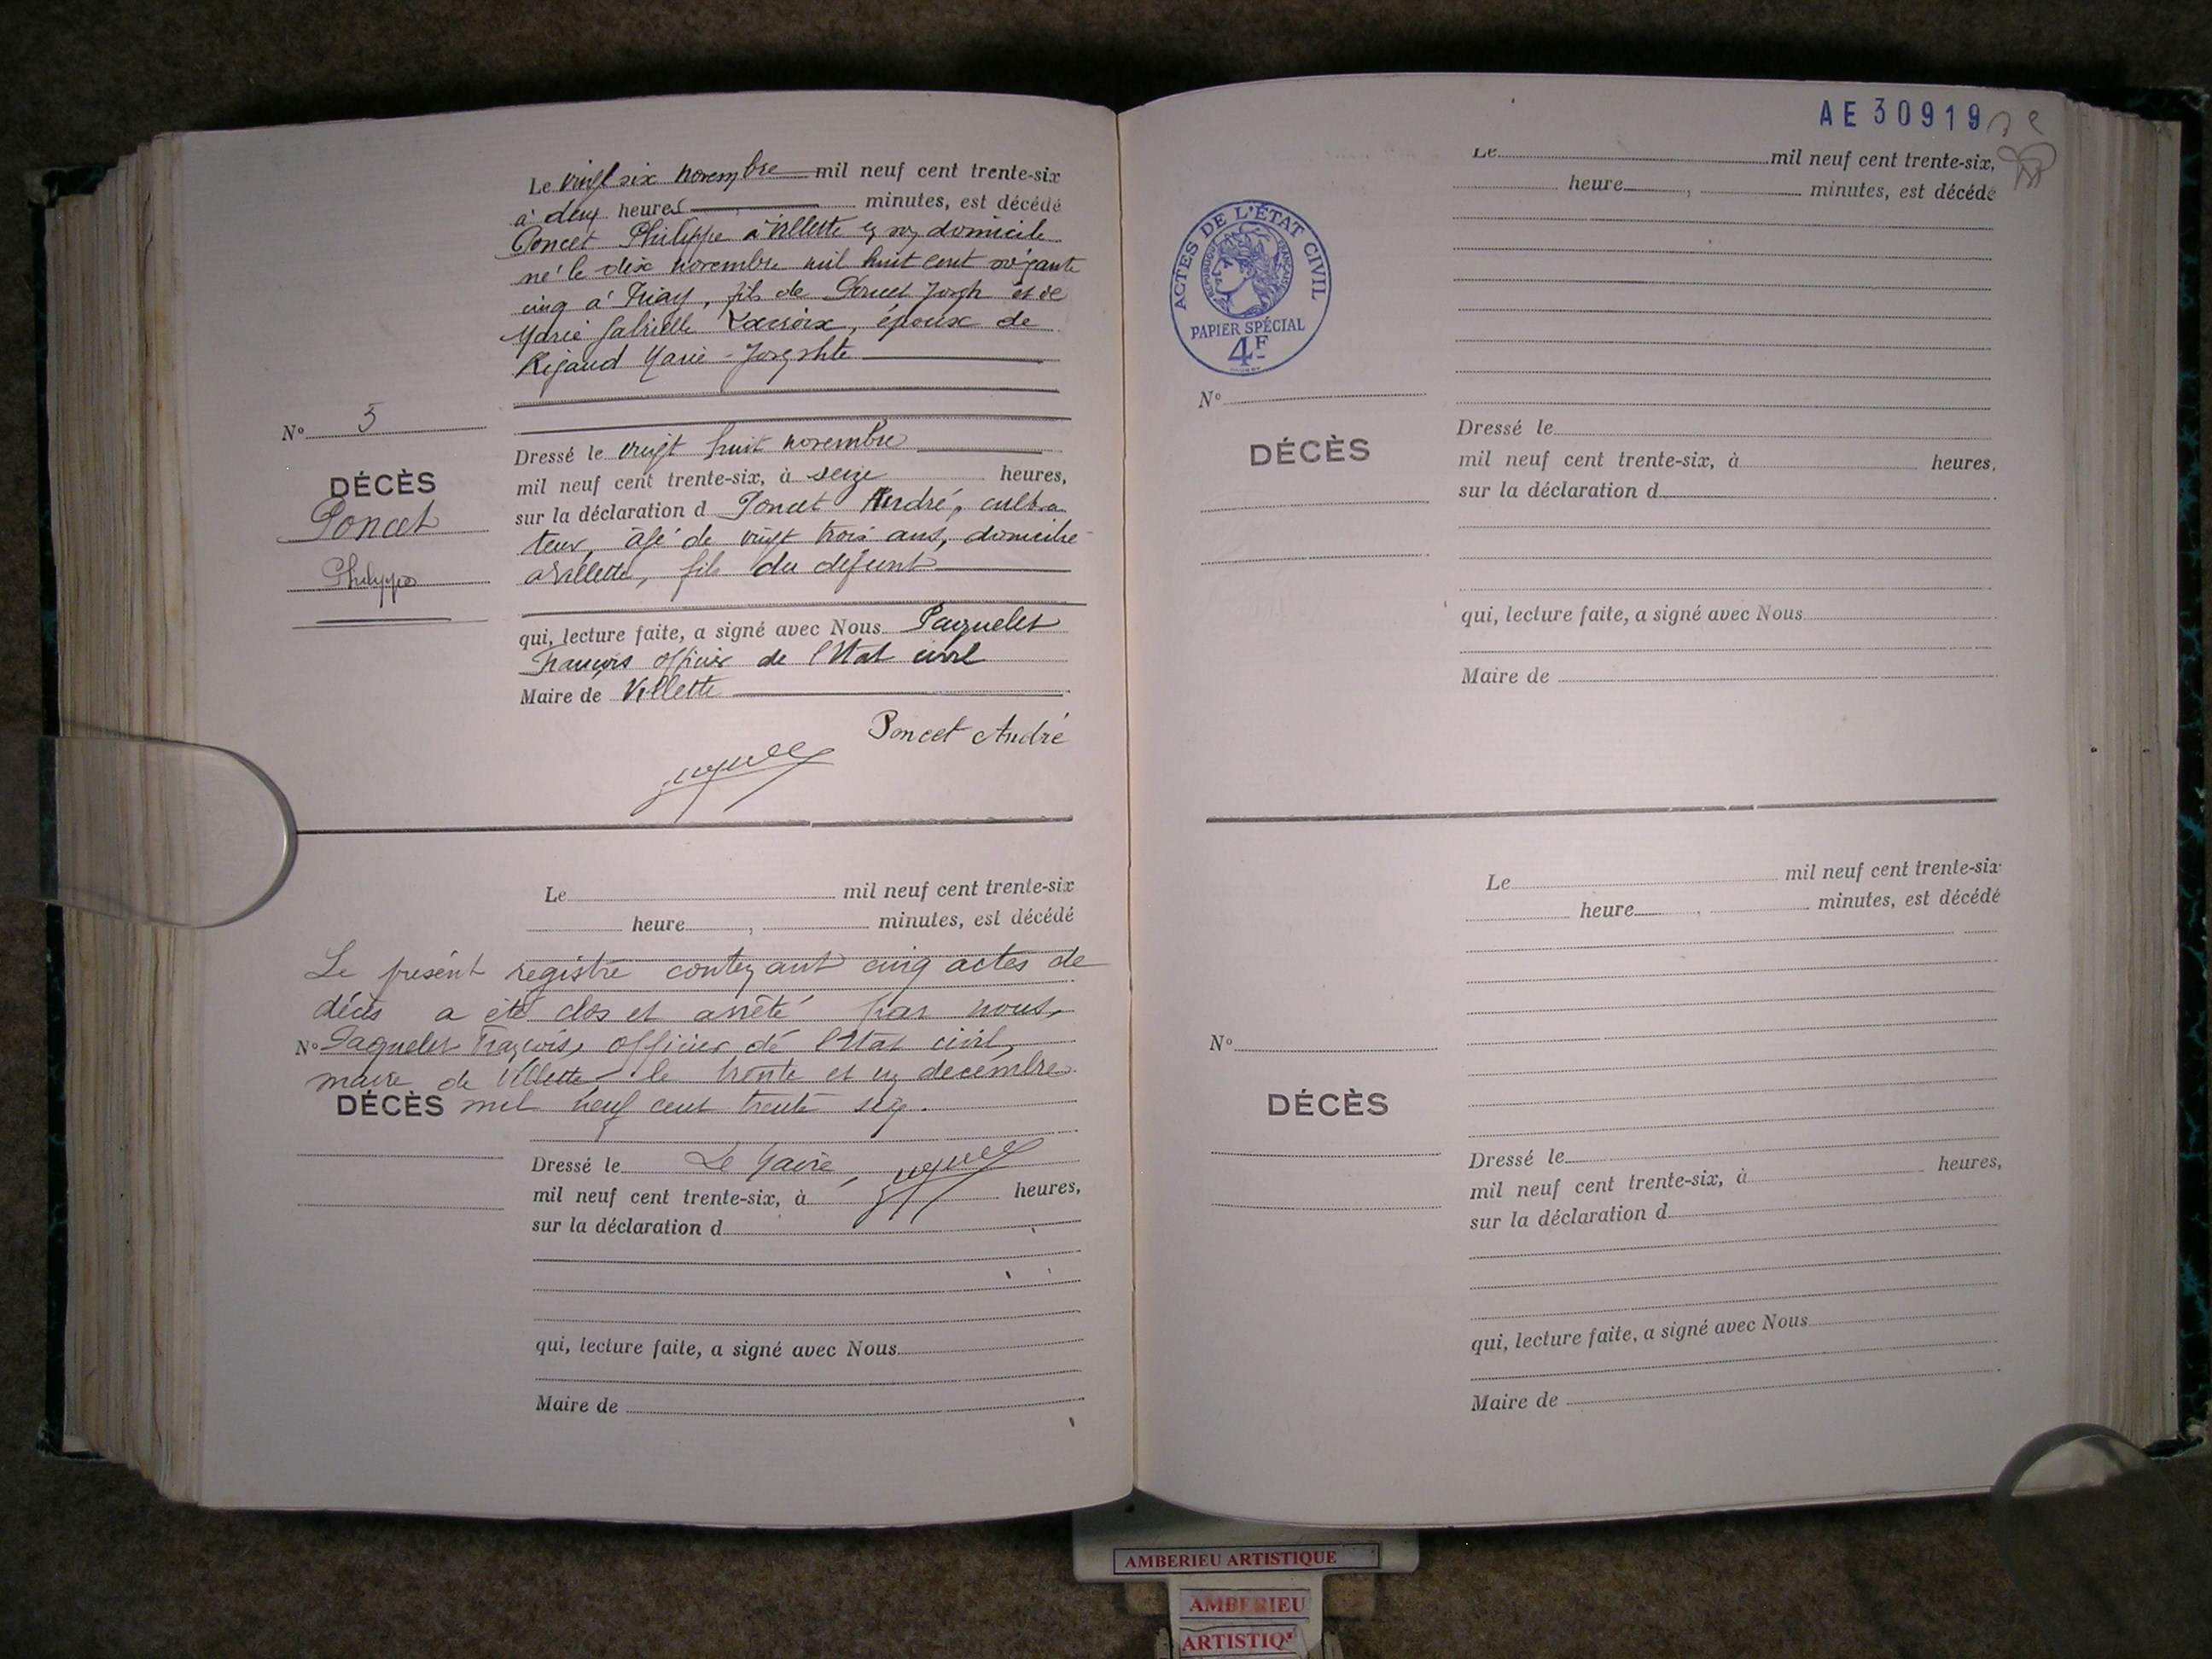 Le vingt six novembre mil neuf cent trente-six
à deux heures minutes, est décédé
Poncet Philippe à Villette en son domicile
né le dix novembre mil huit cent soixante
cinq à Priay, fils de Poncet Joseph et de
Marie Gabrielle Lacroix, époux de
Rigaud Marie-Josephte
N° 5
DÉCÈS
Poncet
Philippe
Dressé le vingt huit novembre
mil neuf cent trente-six, à seize heures,
sur la déclaration d Poncet André, cultiva
teur, âgé de vingt trois ans, domicilié
à Villette, fils du défunt
qui, lecture faite, a signé avec Nous Paquelet
François officier de l'Etat civil
Maire de Villette
Poncet André
Le mil neuf cent trente-six
heure , minutes, est décédé
Le présent registre contenant cinq actes de
décès a été clos et arrêté par nous,
N° Paquelet François, officier de l'Etat civil,
maire de Villette le trente et un décembre
DÉCÈS mil neuf cent trente six.
Dressé le Le Maire,
mil neuf cent trente-six, à heures,
sur la déclaration d
qui, lecture faite, a signé avec Nous
Maire de
AE 30919
Le mil neuf cent trente-six,
heure , minutes, est décédé
ACTES DE L'ÉTAT CIVIL
RÉPUBLIQUE FRANÇAISE
PAPIER SPÉCIAL
4F
N°
DÉCÈS
Dressé le
mil neuf cent trente-six, à heures,
sur la déclaration d
qui, lecture faite, a signé avec Nous
Maire de
Le mil neuf cent trente-six
heure , minutes, est décédé
N°
DÉCÈS
Dressé le
mil neuf cent trente-six, à heures,
sur la déclaration d
qui, lecture faite, a signé avec Nous
Maire de
AMBERIEU ARTISTIQUE
AMBERIEU
ARTISTIQ